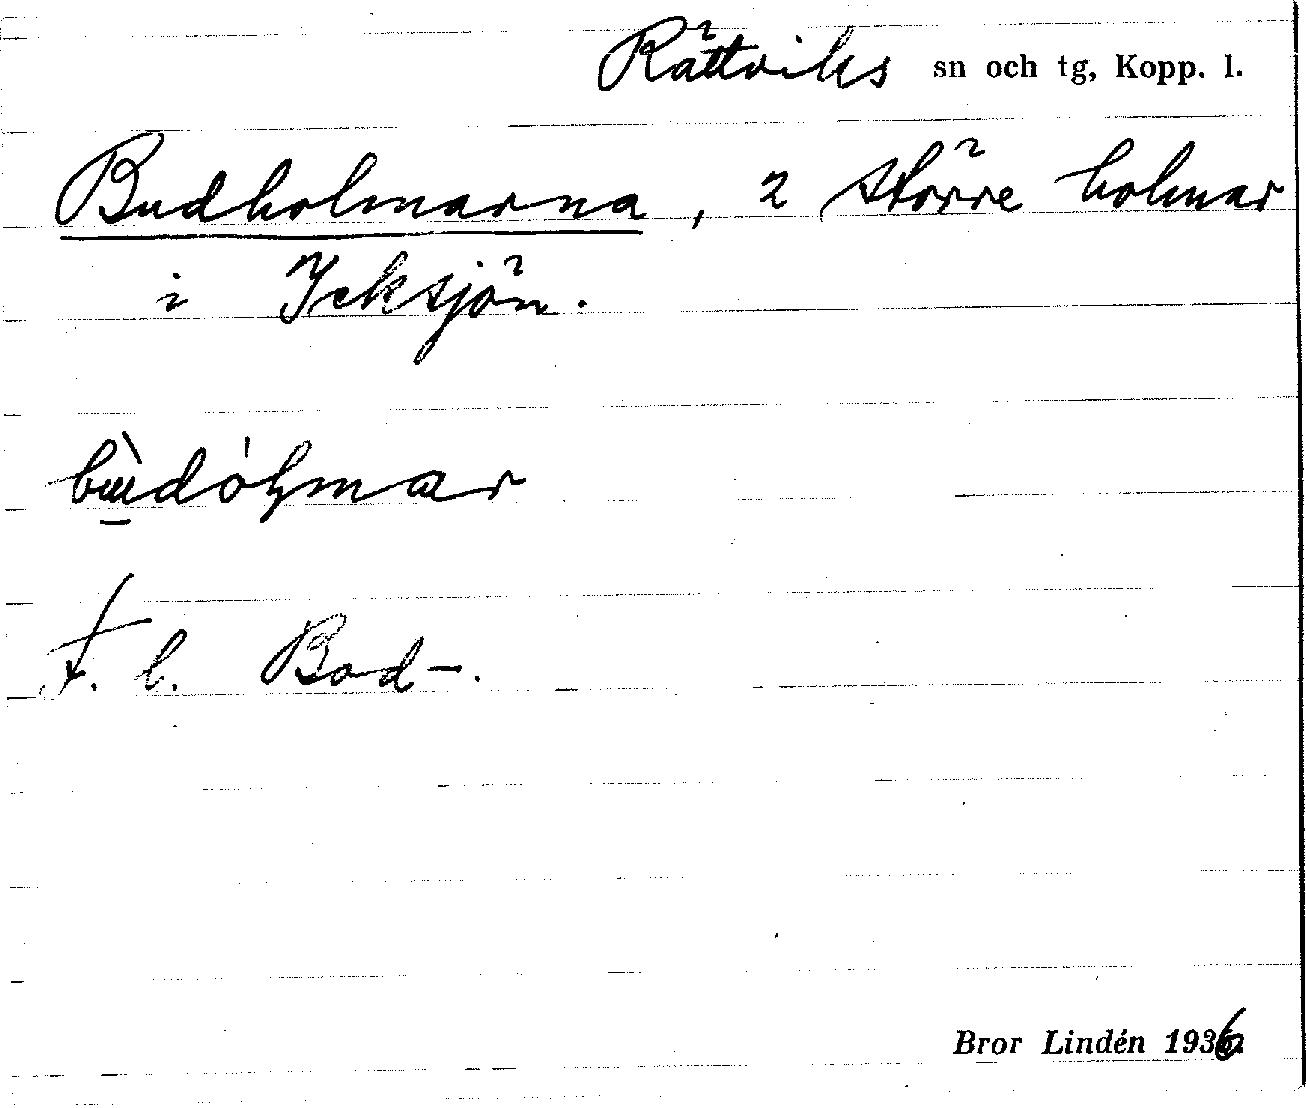 Rättviks sn och tg, Kopp. l.
Budholmarna, 2 större holmar
i Icksjön.
F. b. Bod-.
Bror Lindén 1936